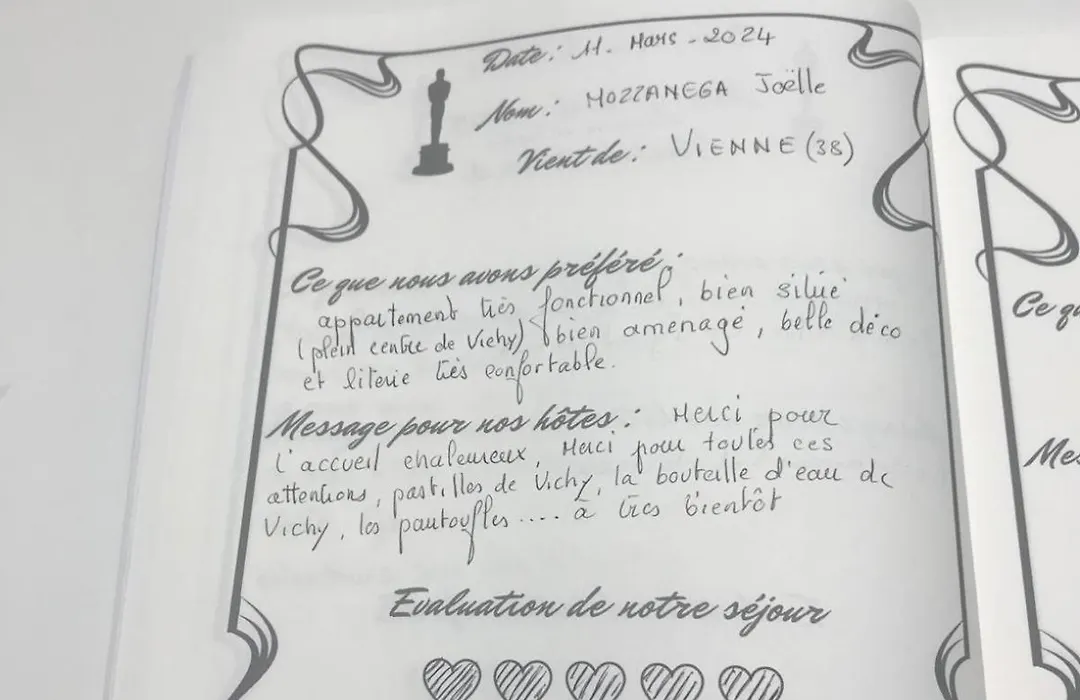 Date : 11. Mars - 2024
Nom : MOZZANEGA Joëlle
Vient de : VIENNE (38)
Ce que nous avons préféré :
appartement très fonctionnel, bien situé
(plein centre de Vichy) bien amenagé, belle déco
et literie très confortable.
Message pour nos hôtes : Merci pour
l'accueil chaleureux, Merci pour toutes ces
attentions, pastilles de Vichy, la bouteille d'eau de
Vichy, les pantoufles.... à très bientôt
Evaluation de notre séjour
Ce qu
Mes